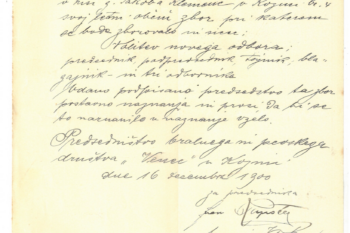 v hiši g. Jakoba Klemenc v Kojni št. 4
svoj letni občni zbor pri katerem
se bode zborovalo in sicer:
Volitev novega odbora:
predsednik, podpredsednik, tajnik, bla-
gajnik in tri odbornike
Udano podpisano predsedstvo ta zbor
postavno naznanja in prosi da bi se
to naznanilo v naznanje vzelo.
Predsedništvo bralnega in pevskega
društva "
dne 16 decembra 1900
za predsednika